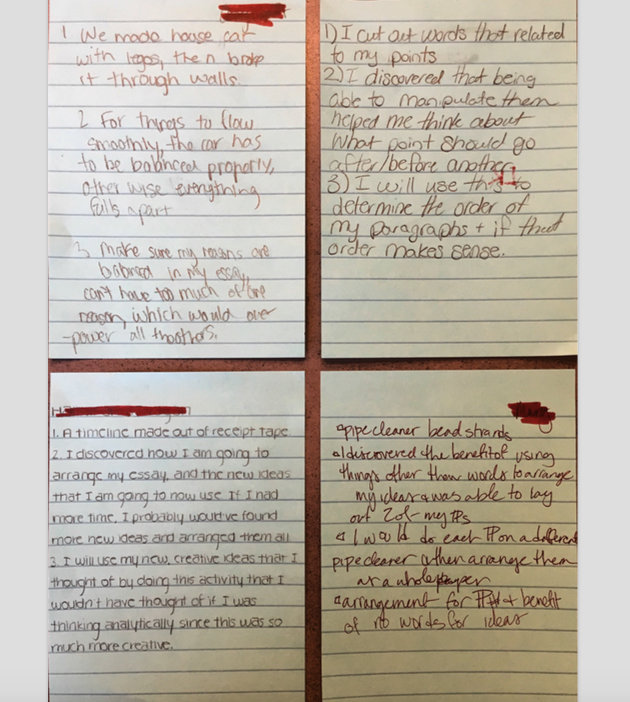 1 We made house car
with legos, then broke
it through walls.
2 For things to flow
smoothly, the car has
to be balanced properly,
other wise everything
falls apart
3 make sure my reasons are
balanced in my essay,
can't have too much of one
reason, which would over
-power all the others.
1) I cut out words that related
to my points
2) I discovered that being
able to manipulate them
helped me think about
what point should go
after/before another.
3) I will use this to
determine the order of
my paragraphs + if that
order makes sense.
1. A timeline made out of receipt tape
2. I discovered how I am going to
arrange my essay, and the new ideas
that I am going to now use If I had
more time, I probably would've found
more new ideas and arranged them all
3. I will use my new, creative ideas that I
thought of by doing this activity that I
wouldn't have thought of if I was
thinking analytically since this was so
much more creative.
pipe cleaner bead strands
I discovered the benefit of using
things other than words to arrange
my ideas & was able to lay
out 2 of my TPs
I would do each TP on a different
pipe cleaner & then arrange them
as a whole paper
arrangement for & benefit
of no words for ideas